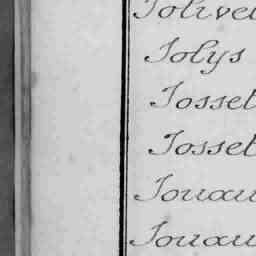 Jolivet
Jolys
Josset
Josset
Jouau
Jouau